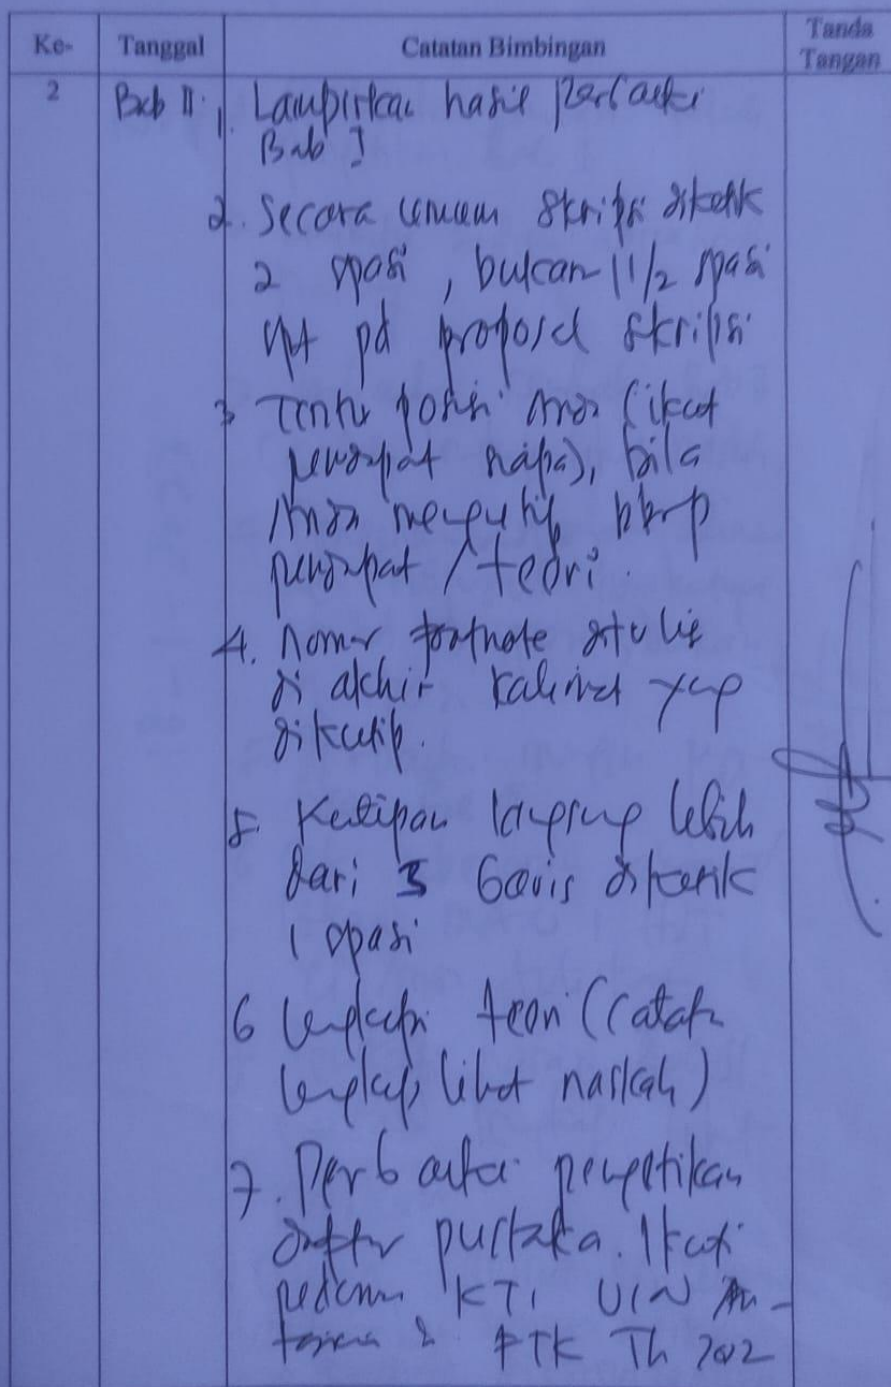 Ke-
Tanggal
Catatan Bimbingan
Tanda
Tangan
2
Bab II.
1. Lampirkan hasil perbaiki
Bab I
2. Secara umum skripsi diketik
2 spasi, bukan 1 1/2 spasi
spt pd proposal skripsi
3 Tentu posisi Anda (ikut
pendapat siapa), bila
Anda mengutip bbrp
pendapat / teori.
4. Nomor footnote ditulis
di akhir kalimat yang
dikutip.
5. Kutipan langsung lebih
dari 3 baris diketik
1 spasi
6 Lengkapi teori (catatan
lengkap, lihat naskah)
7. Perbaiki pengetikan
daftar pustaka. Ikuti
pedoman KTI UIN An-
tasari & FTK Th